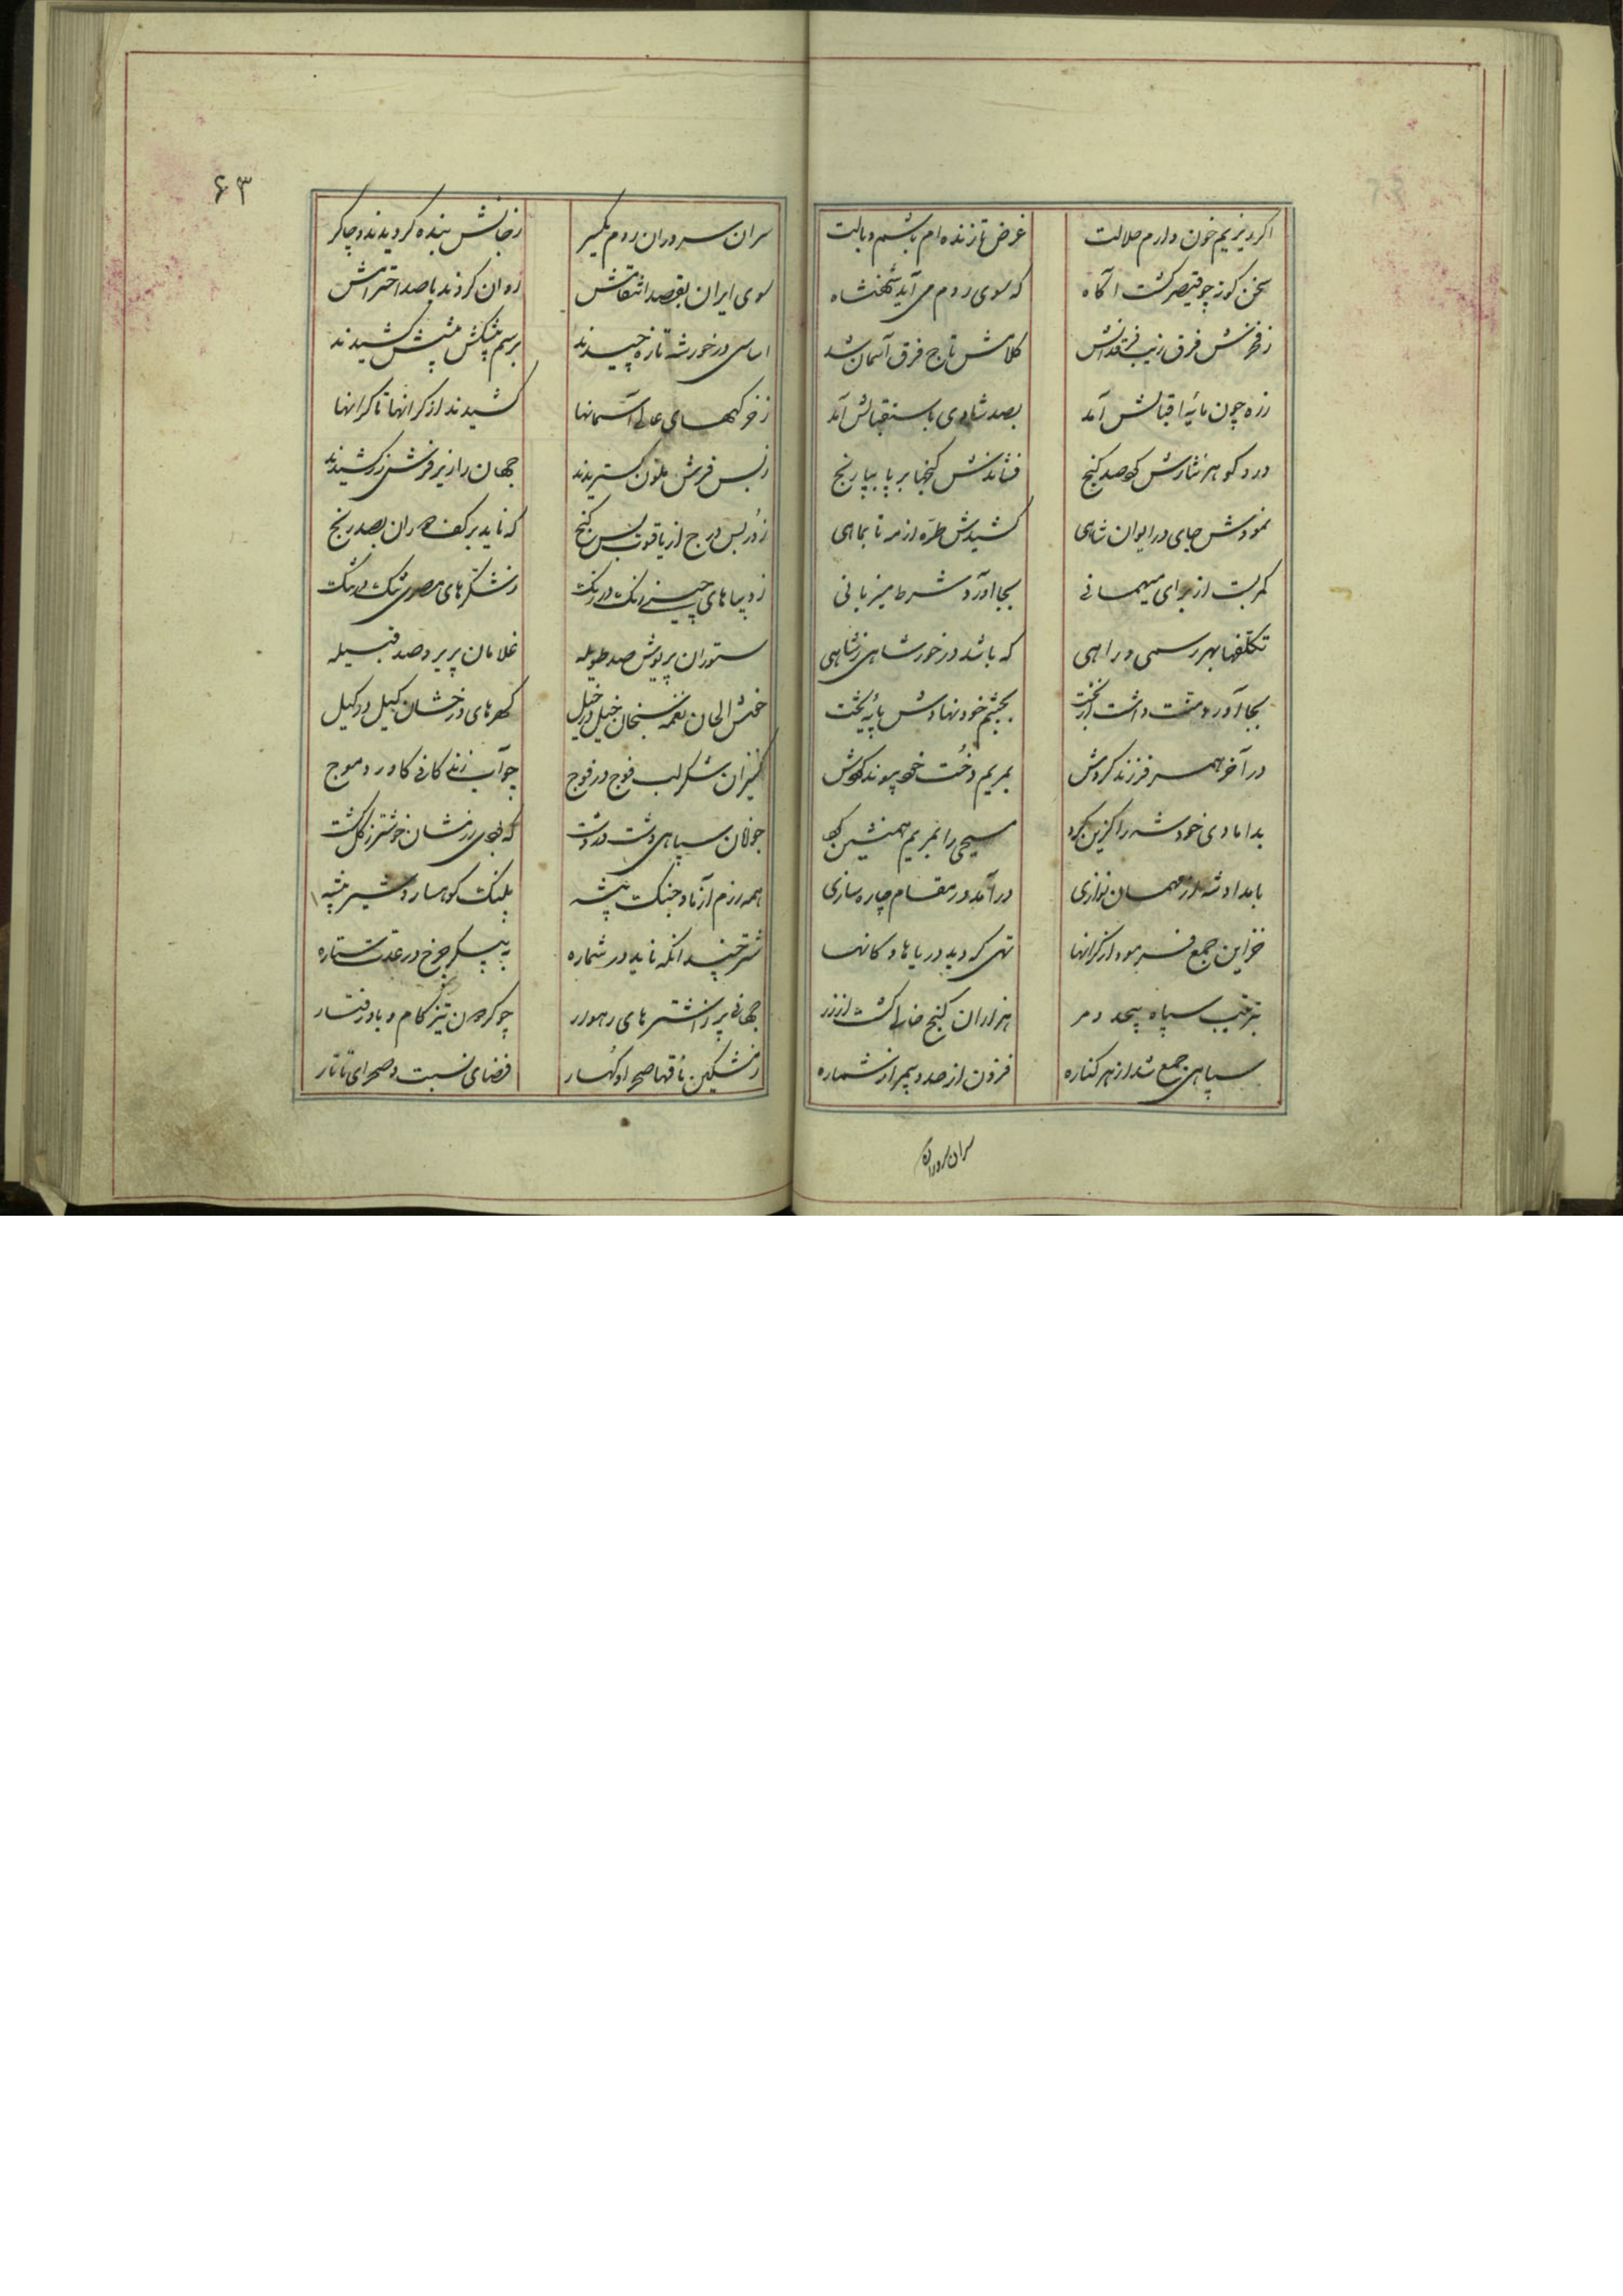 اگر ریزیم خون دارم حلالت غرض تا زنده ام باشم وبالت
سخن کوته چو قیصر گشت آگاه که سوی روم می آید شهنشاه
ز فخرش فرق زیب فرقدان شد کلاهش تاج فرق آسمان شد
زره چون مایهٔ اقبالش آمد بصد شادی باستقبالش آمد
در و گوهر نثارش کرد صد گنج فشاندش گنجها بر پا بپا رنج
نمودش جای در ایوان شاهی کشیدش طره از مه تا بماهی
کمر بست از برای میهمانی بجا آورد شرط میزبانی
تکلفها بهر رسمی و راهی که باشد در خور شاهی ز شاهی
بجا آورد و منت داشت از بخت بچشم خود نهادش پایهٔ تخت
در آخر همسر فرزند کردش بمریم دخت خود پیوند کردش
بدامادی خود شه را گزین کرد مسیحی را بمریم همنشین کرد
بامداد شه از مهمان نوازی درآمد در مقام چاره سازی
خزاین جمع فرمود از کرانها تهی گردید دریاها و کانها
بترتیب سپاه بیحد و مر هزاران گنج خالی گشت از زر
سپاهی جمع شد از هر کناره فزون از حد و بیمر از شماره
سران سروران
۶۳
سران سروران روم یکسر ز جانش بنده گردیدند و چاکر
سوی ایران بقصد انتقامش روان کردند با صد احترامش
اساسی در خور شه تازه چیدند برسم پیشکش پیشش کشیدند
ز خرگههای عالی آسمانها کشیدند از کرانها تا کرانها
ز بس فرش ملون گستریدند جهان را زیر فرش زر کشیدند
ز در بس درج از یاقوت بس گنج که ناید بر کف دوران بصد رنج
ز دیباهای چینی رنگ در رنگ ز شکرهای مصری تنگ در تنگ
ستوران پریوش صد طویله غلامان پریرو صد قبیله
خوش الحان نغمه سنجان خیل در خیل گهرهای درخشان کیل در کیل
کنیزان شکر لب فوج در فوج چو آب زندگانی کاورد موج
جوانان سپاهی دشت در دشت که بود رزمشان خوشتر ز گلگشت
همه رزم آزما و جنگ پیشه پلنگ کوهسار و شیر بیشه
شتر چندانکه ناید در شماره به پیکر چرخ در عدت ستاره
جهانی پر ز اشترهای رهوار چو گردون تیز گام و باد رفتار
ز مشکین ناقها صحرا و کهسار فضای تبت و صحرای تاتار